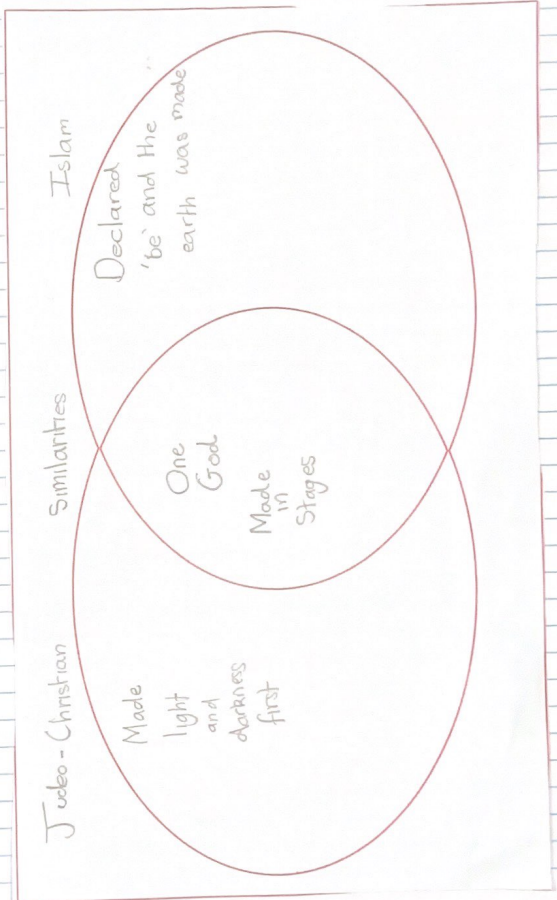 Judeo - Christian
Similarities
Islam
Made
light
and
darkness
first
One
God
Made
in
Stages
Declared
'be' and the
earth was made